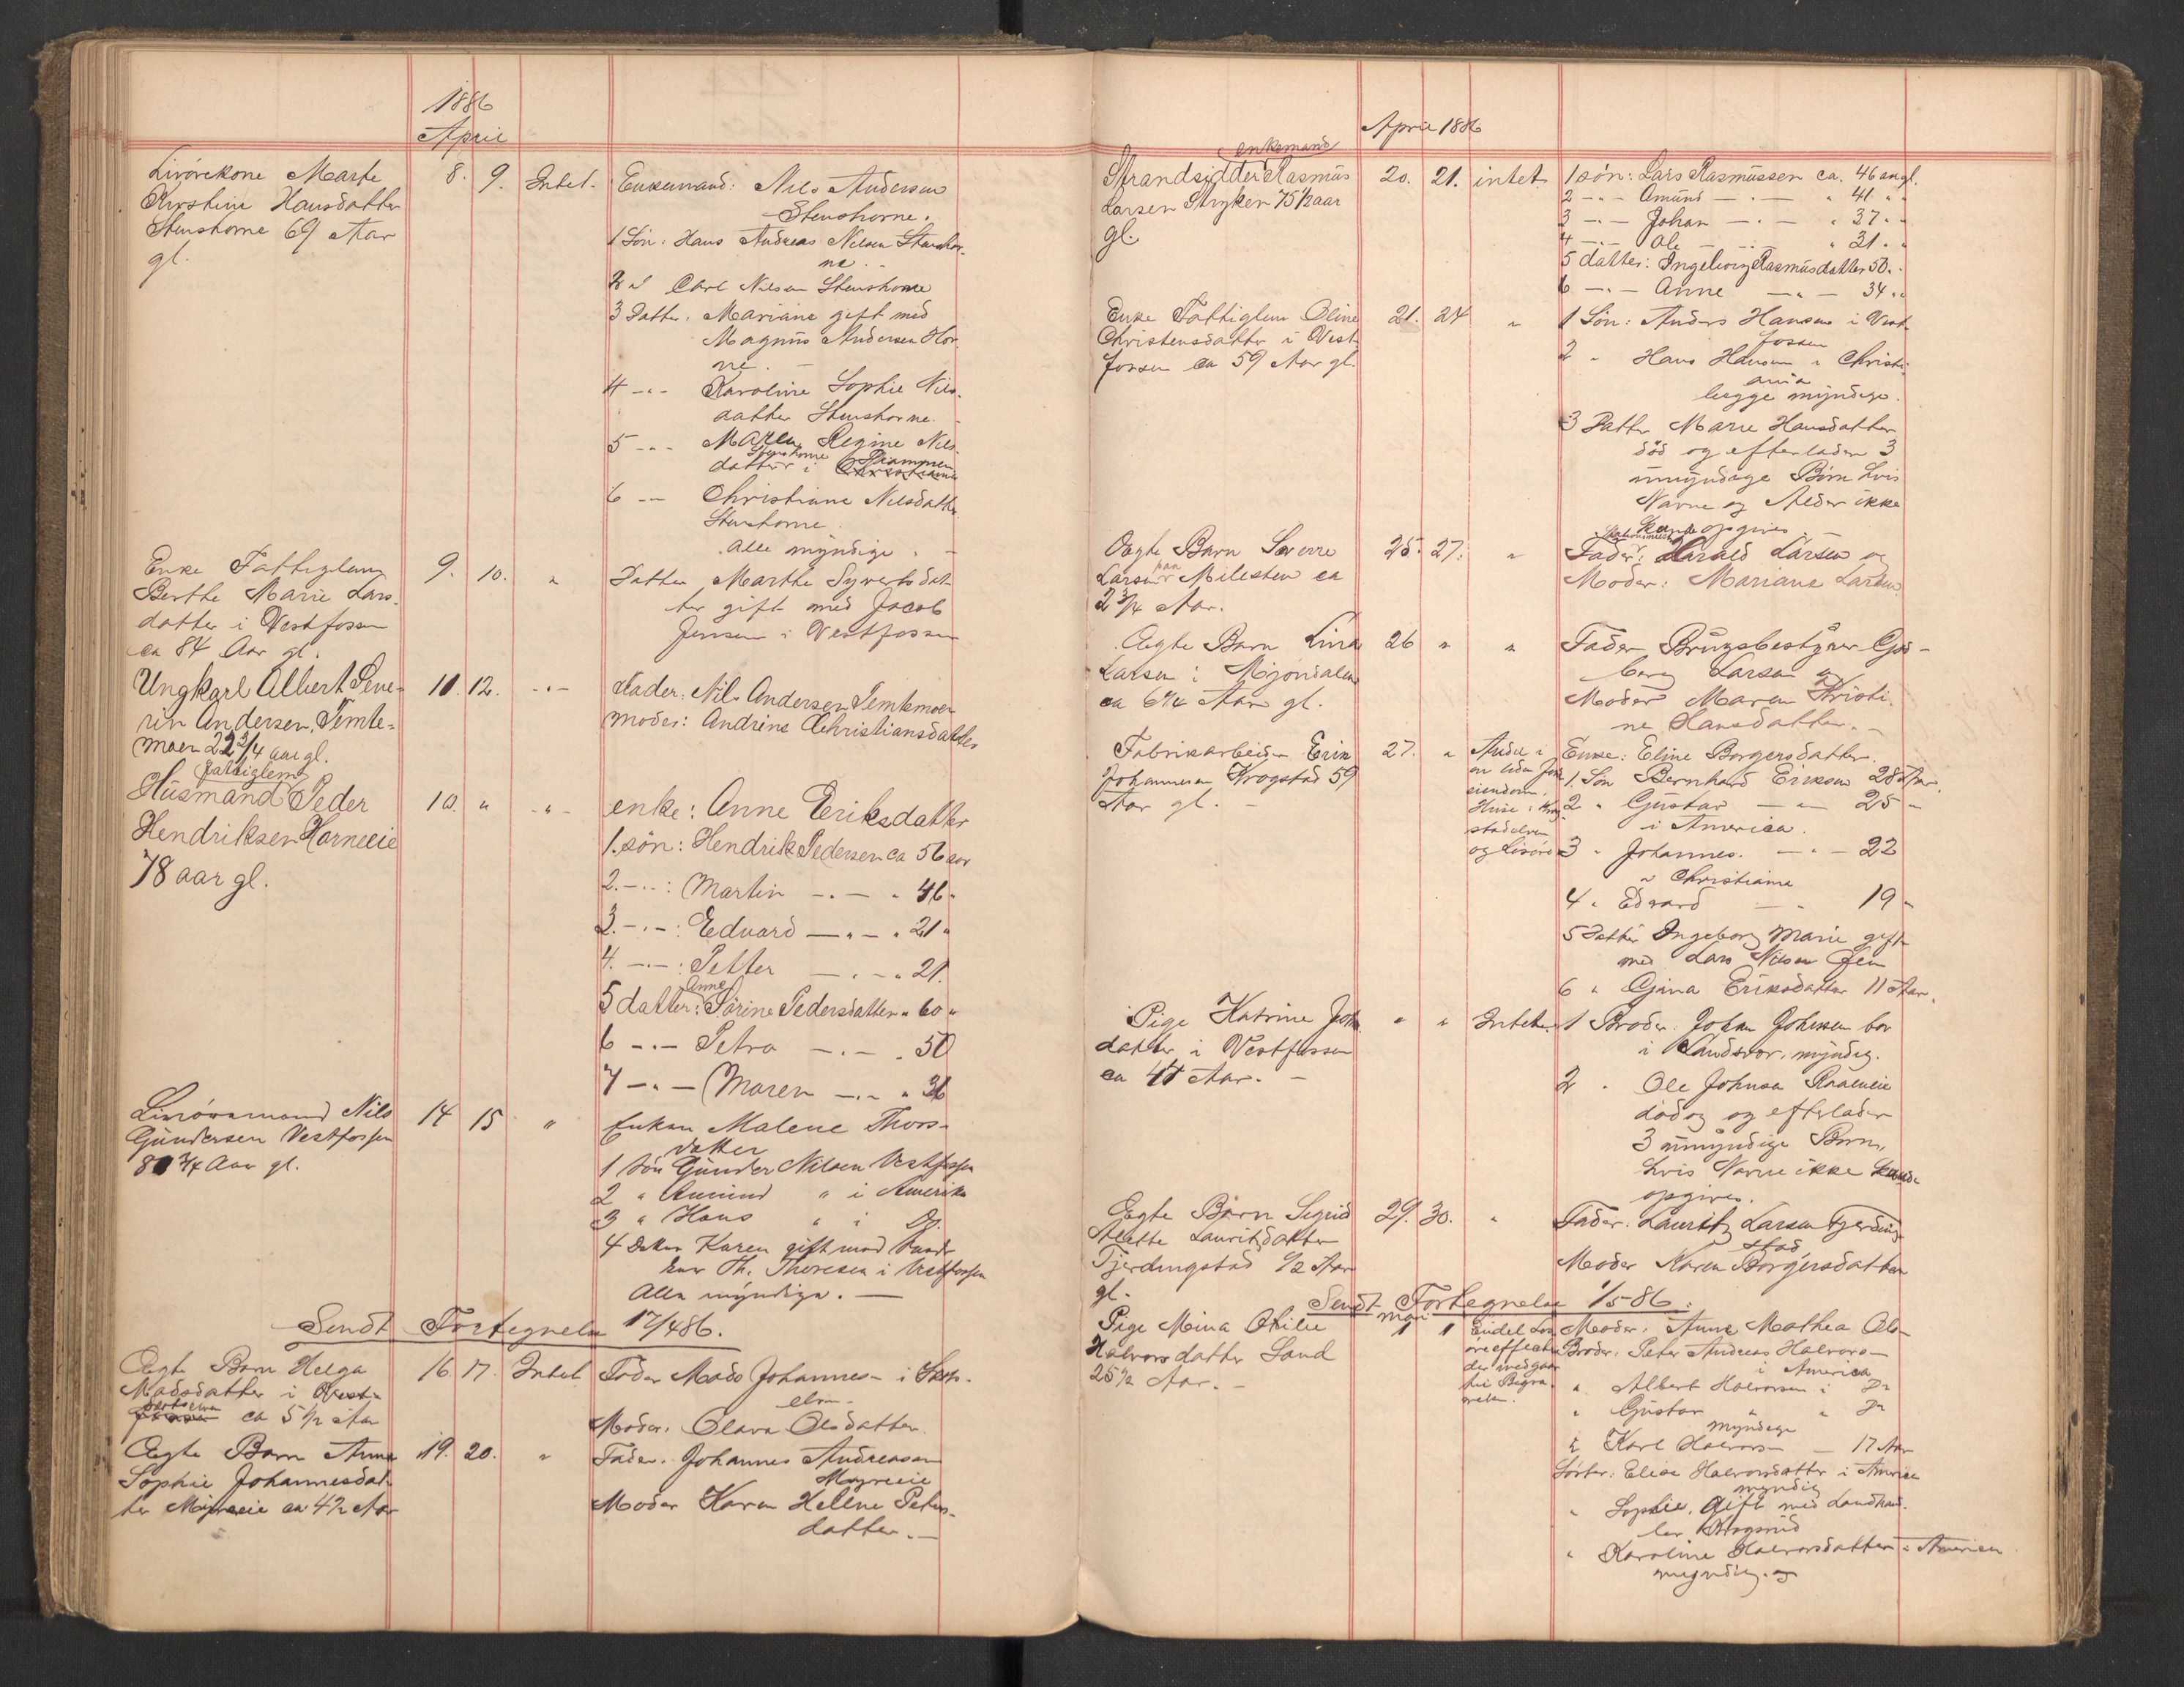 1886
April
Livørekone Marte 8. 9. Intet. Enkemand: Nils Andersen
Kirstine Hansdatter Stenshorne.
Stenshorne 69 Aar 1 Søn: Hans Andreas Nilsen Stenshor-
gl. ne.
2 " Carl Nilsen Stenshorne
3 Datter. Mariane gift med
Magnus Andersen Hor-
ne.
4 -"- Karoline Sophie Nils-
datter Stenshorne.
5 -"- Maren Regine Nils-
Stenshorne Drammen
datter i
6 -"- Christiane Nilsdatter
Stenshorne.
Alle myndige.
Enke Fattiglem 9. 10. " Datter Marthe Syvertsdat-
Berthe Marie Lars- ter gift med Jacob
datter i Vestfossen Jensen i Vestfossen
ca 84 Aar gl.
Ungkarl Albert Seve- 10. 12. -"- Fader: Nils Andersen Temtemoen
rin Andersen, Temte- Moder: Andrine Christiansdatter
moen 22 3/4 aar gl.
Fattiglem
Husmand Peder 10. " -"- enke: Anne Eriksdatter
Hendriksen Horneeie 1. søn: Hendrik Pedersen ca 56 aar
78 aar gl. 2. -"-: Martin -"- " 46 "
3. -"-: Edvard -"- " 21 "
4. -"-: Petter -"- " 21.
Anne
5 datter: Sørine Pedersdatter " 60 "
6 -"- Petra -"- " 50
7 -"- Maren -"- " 36
Livøremand Nils 14 15 " Enken Malene Thors-
Gundersen Vestfossen datter
80 3/4 Aar gl. 1 Søn Gunder Nilsen Vestfossen
2 " Amund " i Amerika
3 " Hans " i Do.
4 Datter Karen gift med
Th. Thoresen i Vestfossen
Alle myndige.
Sendt Fortegnelse 17/4 86.
Ægte Barn Helga 16. 17. Intet Fader Mads Johannes- i Skots-
Madsdatter i elven
ca 5 1/2 Aar Moder. Olava Olsdatter.
Ægte Barn Anna 19. 20. " Fader. Johannes Andreasen
Sophie Johannesdat- Myreeie
ter Myreeie ca 4 1/2 Aar Moder Karen Helene Peters-
datter.
April 1886
enkemand
Strandsidder Rasmus 20. 21. intet 1 søn: Lars Rasmussen ca. 46 aar gl.
Larsen Stryken 75 1/2 aar 2 -"- Amund -"- " 41 " "
gl. 3 -"- Johan -"- " 37 " "
4 -"- Ole -"- " 31 " "
5 datter: Ingeborg Rasmusdatter 50 "
6 -"- Anne -"- 34 " "
Enke Fattiglem Oline 21. 24 " 1 Søn: Anders Hansen i Vest-
Christensdatter i Vest- fossen
fossen ca 59 Aar gl. 2 " Hans Hansen i Christi-
ania
begge myndige.
3 Datter Marie Hansdatter
död og efterlader 3
umyndige Børn hvis
Navne og Alder ikke
kunde opgives
Ægte Barn Sverre 25. 27. " Fader: Harald Larsen og
Larsen paa Milesten ca Moder: Mariane Larsen.
2 3/4 Aar.
Ægte Barn Lina 26 " " Fader Brugsbestyrer Gjul-
Larsen i Mjøndalen berg Larsen og
ca 6 1/4 Aar gl. Moder Maren Kristi-
ne Hansdatter.
Fabrikarbeider Erik 27. " Andel i Enke: Eline Borgersdatter.
Johannesen Krogstad 59 en liden Jord- 1. Søn Bernhard Eriksen 28 Aar.
Aar gl. eiendom, 2 " Gustav -"- 25 "
Huse i Krog- i America.
stadelven
og Løsøre 3 " Johannes. -"- 22
i Christiania
4 " Edvard -"- 19 "
5 Datter Ingeborg Marie gift
med Lars Nilsen
6 " Gina Eriksdatter 11 Aar.
Pige Katrine Johns- " " Intet. 1 Broder. Johan Johnsen bor
datter i Vestfossen i Sandsvær, myndig.
ca 47 Aar. 2 " Ole Johnsen
død og efterlader
3 umyndige Børn,
hvis Navne ikke kunde
opgives.
Ægte Barn Sigrid 29. 30. " Fader. Lauritz Larsen Fjerding-
Mette Lauritzdatter stad
Fjerdingstad 1/2 Aar Moder Karen Borgersdatter
gl.
Sendt Fortegnelse 1/5 86.
Pige Mina Otilie Mai 1 1 Endel Løs- Moder. Anne Mathea Ols-
Halvorsdatter Sand øreffecter Broder. Peter Andreas Halvors-
25 1/2 Aar. der medgaar i America
til Begra- " Albert Halvorsen i Do
velsen. " Gustav " " Do
myndige
" Karl Halvors- - 17 Aar
Søster: Elise Halvorsdatter i America
myndig
" Sophie. Gift med Landhand-
ler Krogsrud
" Karoline Halvorsdatter i America
myndig.